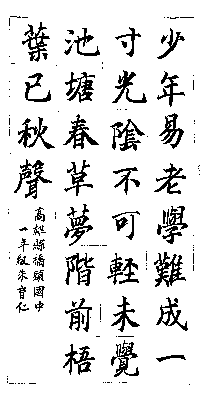 少年易老學難成一
寸光陰不可輕未覺
池塘春草夢階前梧
葉已秋聲
高雄縣橋頭國中
一年級朱育仁